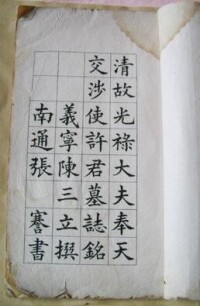 清故光祿大夫奉天
交涉使許君墓誌銘
義寧陳三立撰
南通張謇書